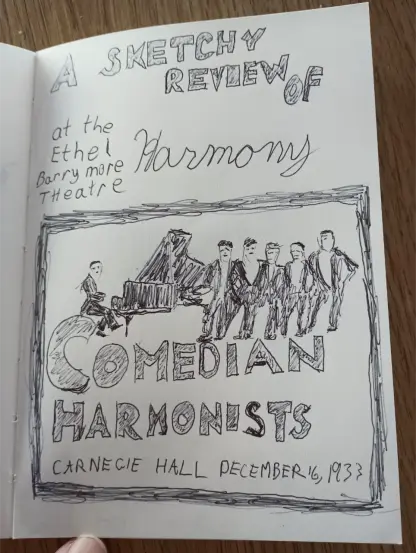 A SKETCHY
REVIEW OF
at the
Ethel
Barrymore
THeatre
Harmony
COMEDIAN
HARMONISTS
CARNEGIE HALL DECEMBER 16, 1933